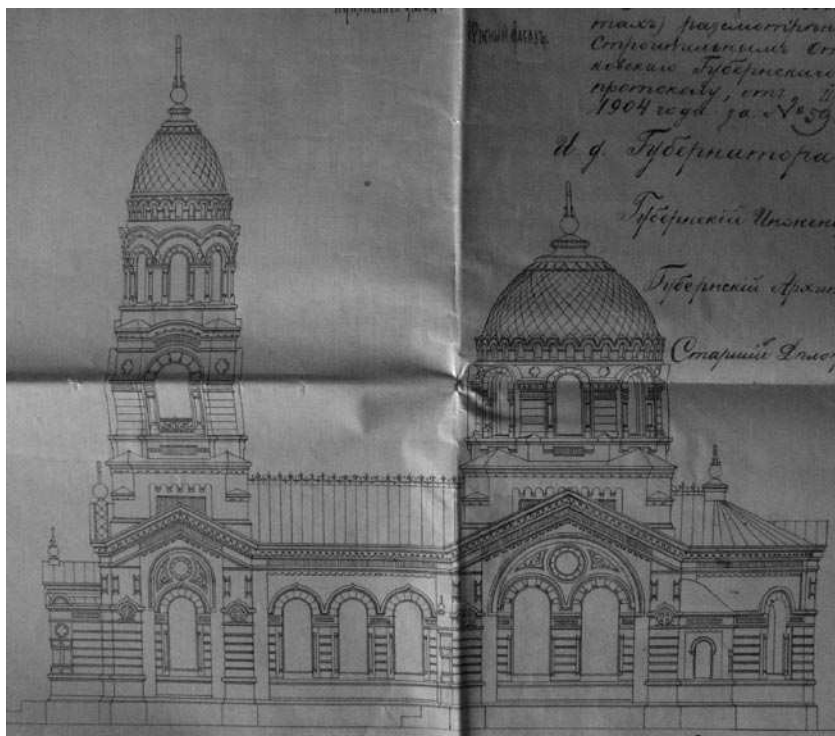 Южный фасадъ.
тахъ) разсмотрѣн
Строительнымъ От
ковскаго Губернскаго
протоколу, отъ
1904 года за №59
И. д. Губернатора
Губернскій Инжене
Губернскій Архи
Старшій Дѣлоп